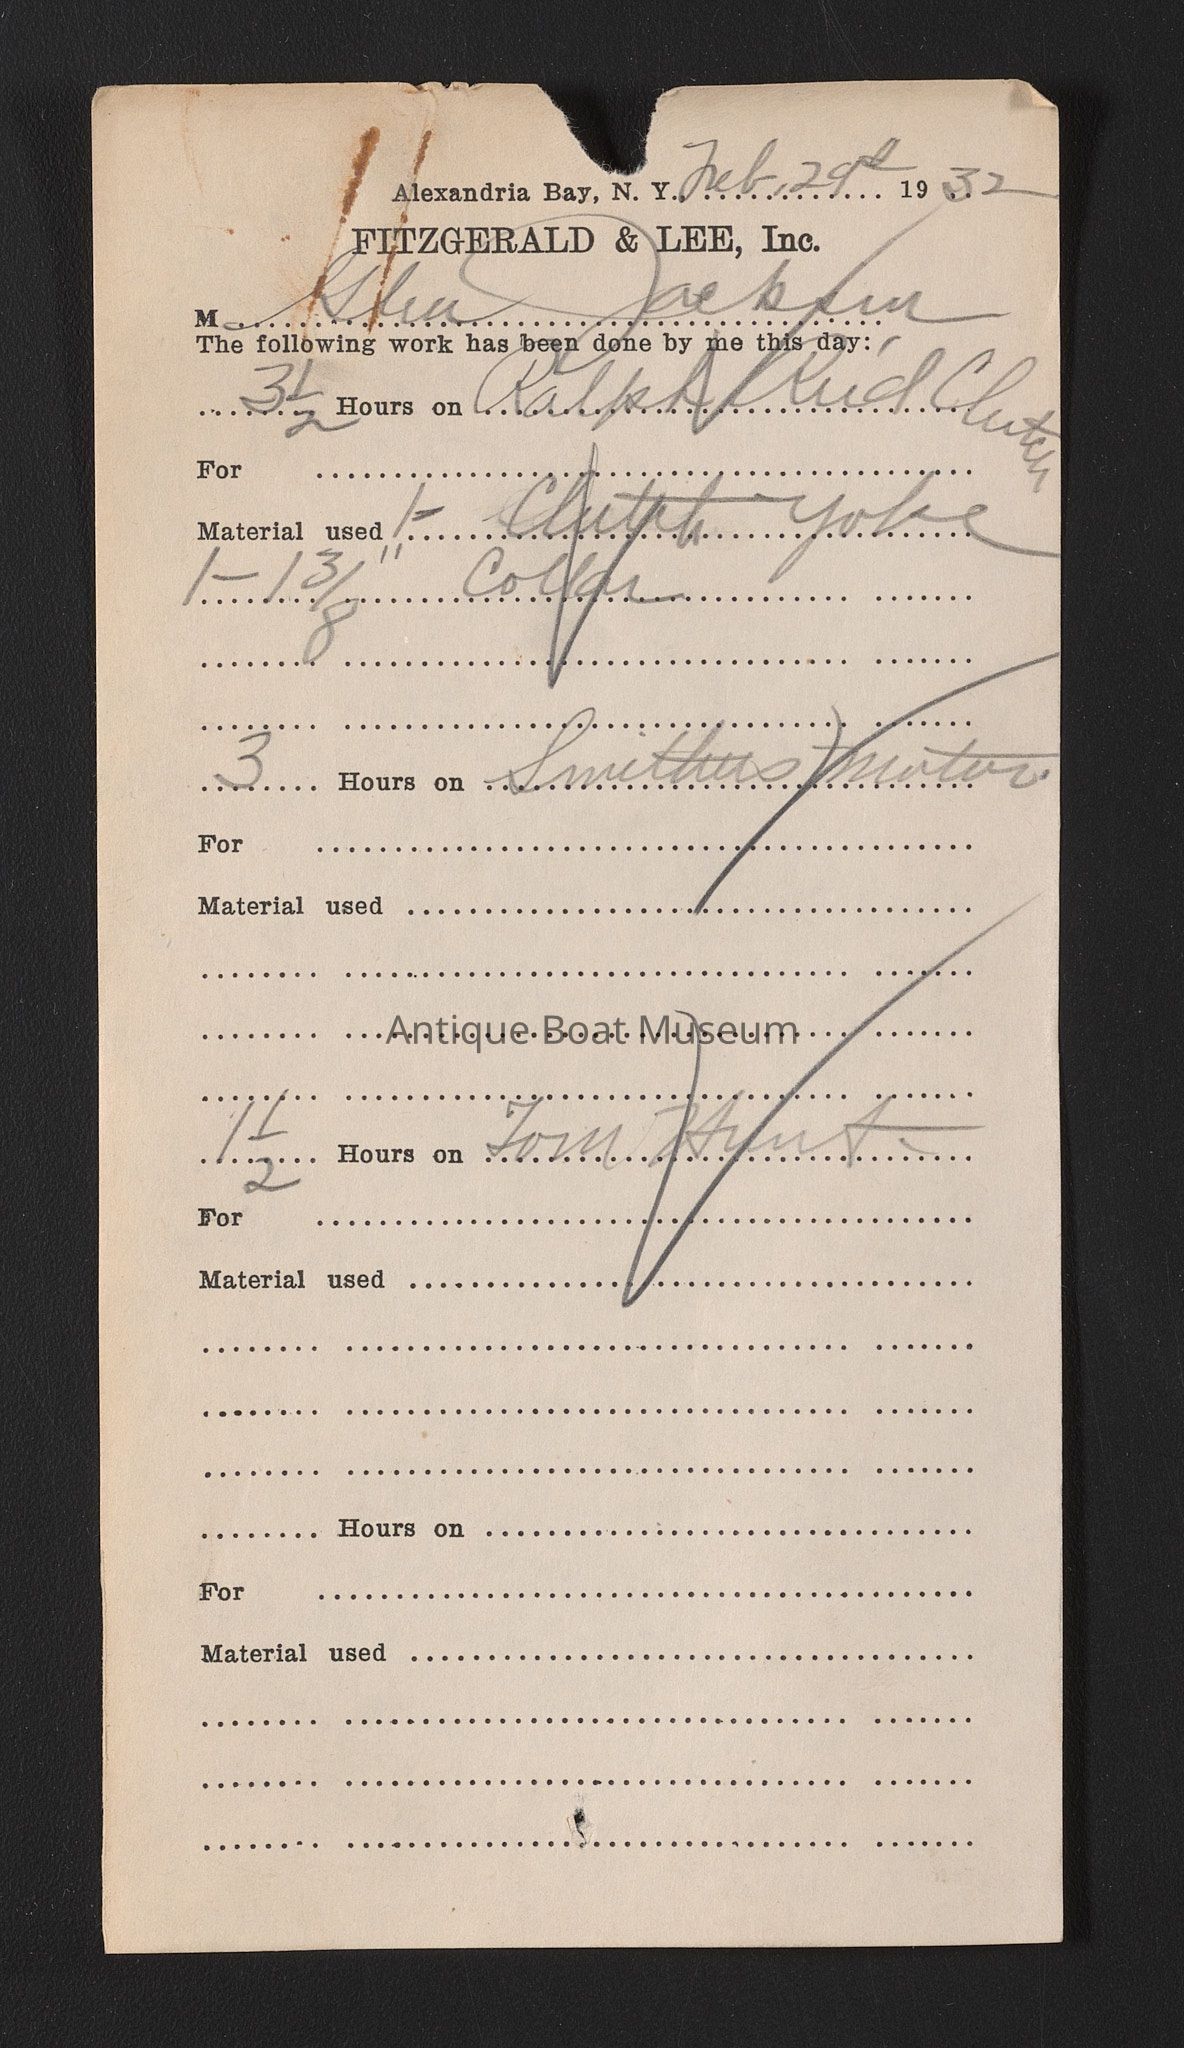 Alexandria Bay, N. Y. Feb. 29th 1932
FITZGERALD & LEE, Inc.
M Glen Jackson
The following work has been done by me this day:
3 1/2 Hours on Ralph Reid Clutch
For
Material used 1- Clutch Yoke
1- 1 3/8" Collar
3 Hours on Smithers motor
For
Material used
Antique Boat Museum
1 1/2 Hours on Tom Hunt
For
Material used
Hours on
For
Material used